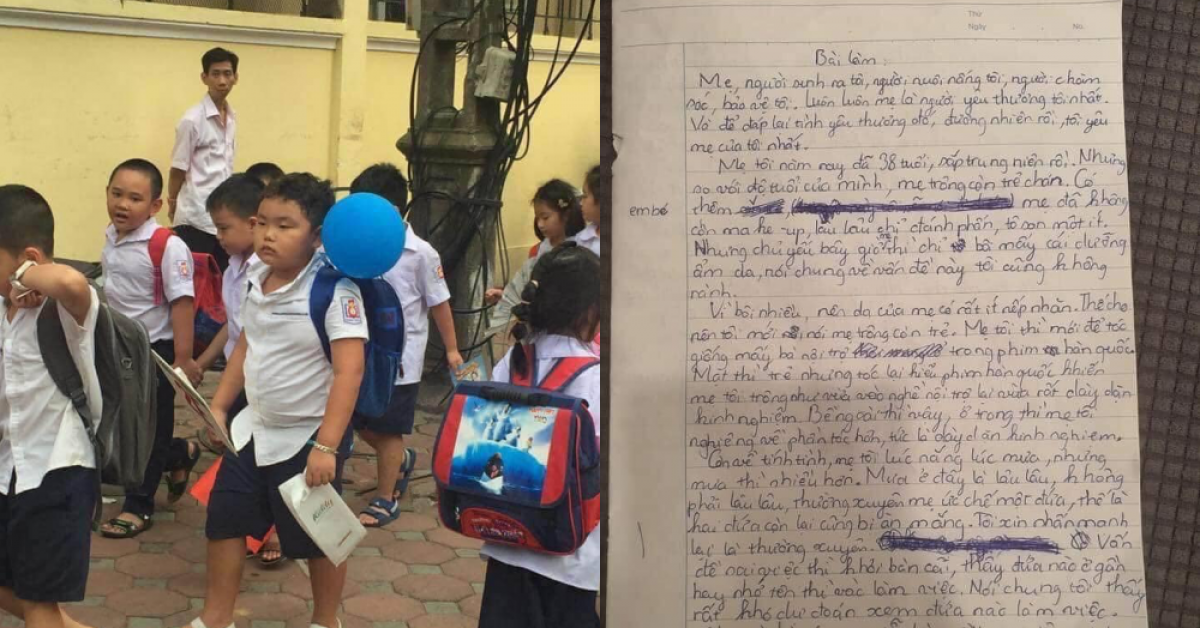 Thứ
Ngày
No.
Bài làm:
Mẹ, người sinh ra tôi, người nuôi nấng tôi, người chăm
sóc, bảo vệ tôi. Luôn luôn mẹ là người yêu thương tôi nhất.
Và để đáp lại tình yêu thương đó, đương nhiên rồi, tôi yêu
mẹ của tôi nhất.
Mẹ tôi năm nay đã 38 tuổi, sắp trung niên rồi. Nhưng
so với độ tuổi của mình, mẹ trông còn trẻ chán. Có
em bé
thêm mẹ đã không
còn make-up, lâu lâu chỉ đánh phấn, tô son một ít.
Nhưng chủ yếu bây giờ thì chỉ bôi mấy cái dưỡng
ẩm da, nói chung về vấn đề này tôi cũng không
rành.
Vì bôi nhiều, nên da của mẹ có rất ít nếp nhăn. Thế cho
nên tôi mới nói mẹ trông còn trẻ. Mẹ tôi thì mới để tóc
giống mấy bà nội trợ trong phim hàn quốc.
Mặt thì trẻ nhưng tóc lại kiểu phim hàn quốc khiến
mẹ tôi trông như vừa vào nghề nội trợ lại vừa rất dày dặn
kinh nghiệm. Bề ngoài thì vậy, ở trong thì mẹ tôi
nghiêng về phần tóc hơn, tức là dày dặn kinh nghiệm.
Còn về tính tình, mẹ tôi lúc nắng lúc mưa, nhưng
mưa thì nhiều hơn. Mưa ở đây là lâu lâu, không
phải lâu lâu, thường xuyên mẹ ức chế một đứa, thế là
hai đứa còn lại cũng bị ăn mắng. Tôi xin nhấn mạnh
lại là thường xuyên. Vấn
đề sai việc thì khỏi bàn cãi, thấy đứa nào ở gần
hay nhớ tên thì vác làm việc. Nói chung tôi thấy
rất khó dự đoán xem đứa nào làm việc.